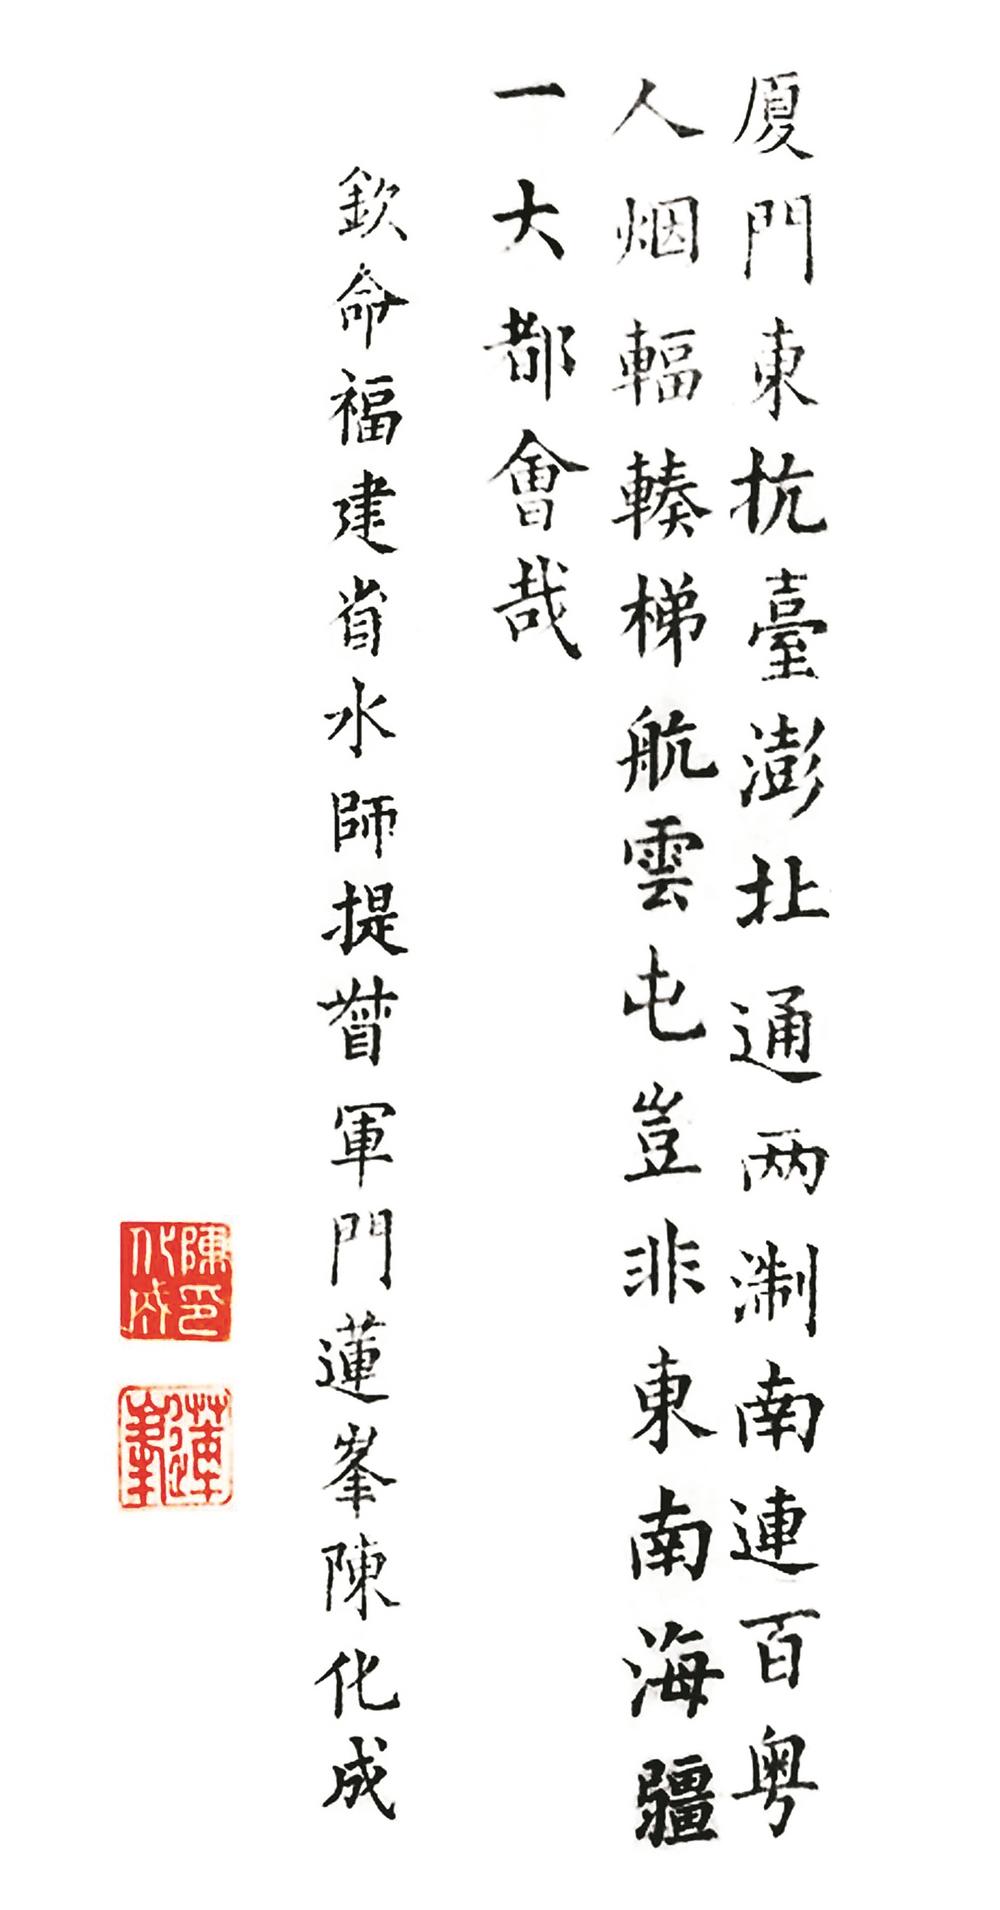 厦門東抗臺澎北通两淛南連百粤
人烟輻輳梯航雲屯豈非東南海疆
一大都會哉
欽命福建省水師提督軍門蓮峯陳化成
陳印化成
蓮峯